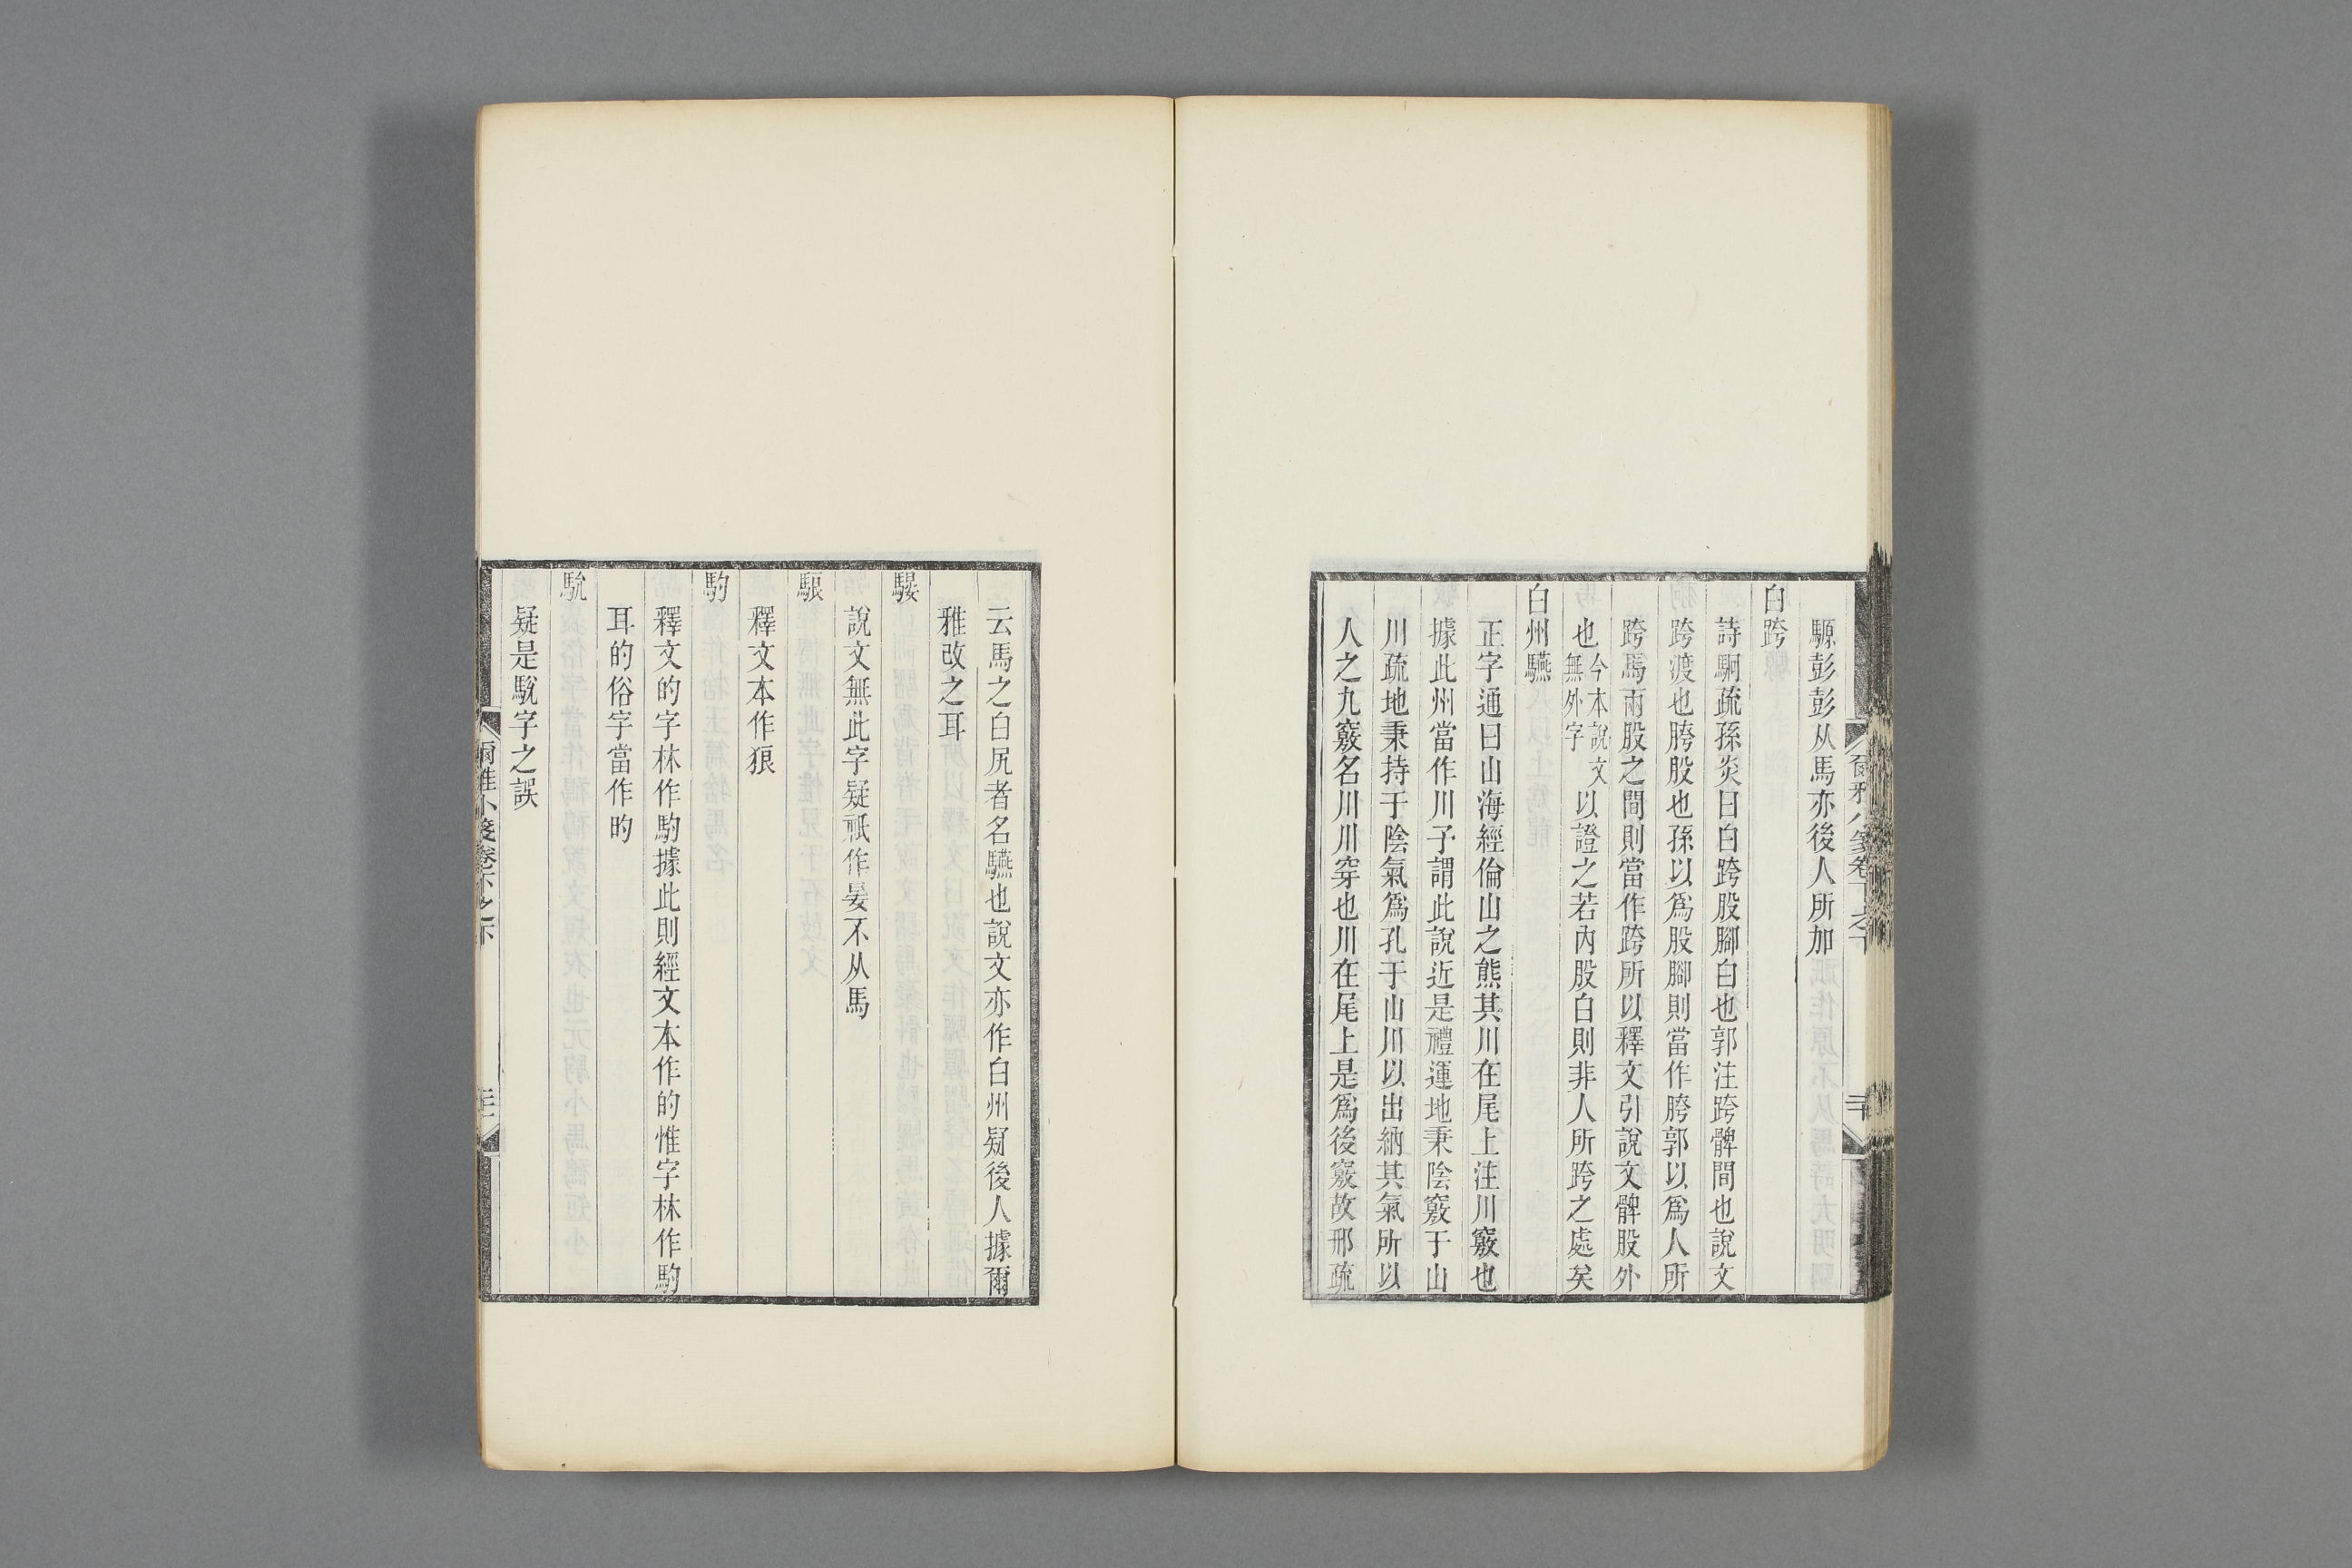 騵彭彭从馬亦後人所加
白跨
詩駉疏孫炎曰白跨股腳白也郭注跨髀間也說文
跨渡也胯股也孫以爲股腳則當作胯郭以爲人所
跨馬兩股之間則當作跨所以釋文引說文髀股外
也今本說文無外字以證之若內股白則非人所跨之處矣
白州驠
正字通曰山海經倫山之熊其川在尾上注川竅也
據此州當作川予謂此說近是禮運地秉陰竅于山
川疏地秉持于陰氣爲孔于山川以出納其氣所以
人之九竅名川川穿也川在尾上是爲後竅故邢疏
云馬之白尻者名驠也說文亦作白州疑後人據爾
雅改之耳
騴
說文無此字疑祇作晏不从馬
駺
釋文本作狼
馰
釋文的字林作馰據此則經文本作的惟字林作馰
耳的俗字當作旳
駾
疑是駾字之誤
爾雅小箋卷下之下